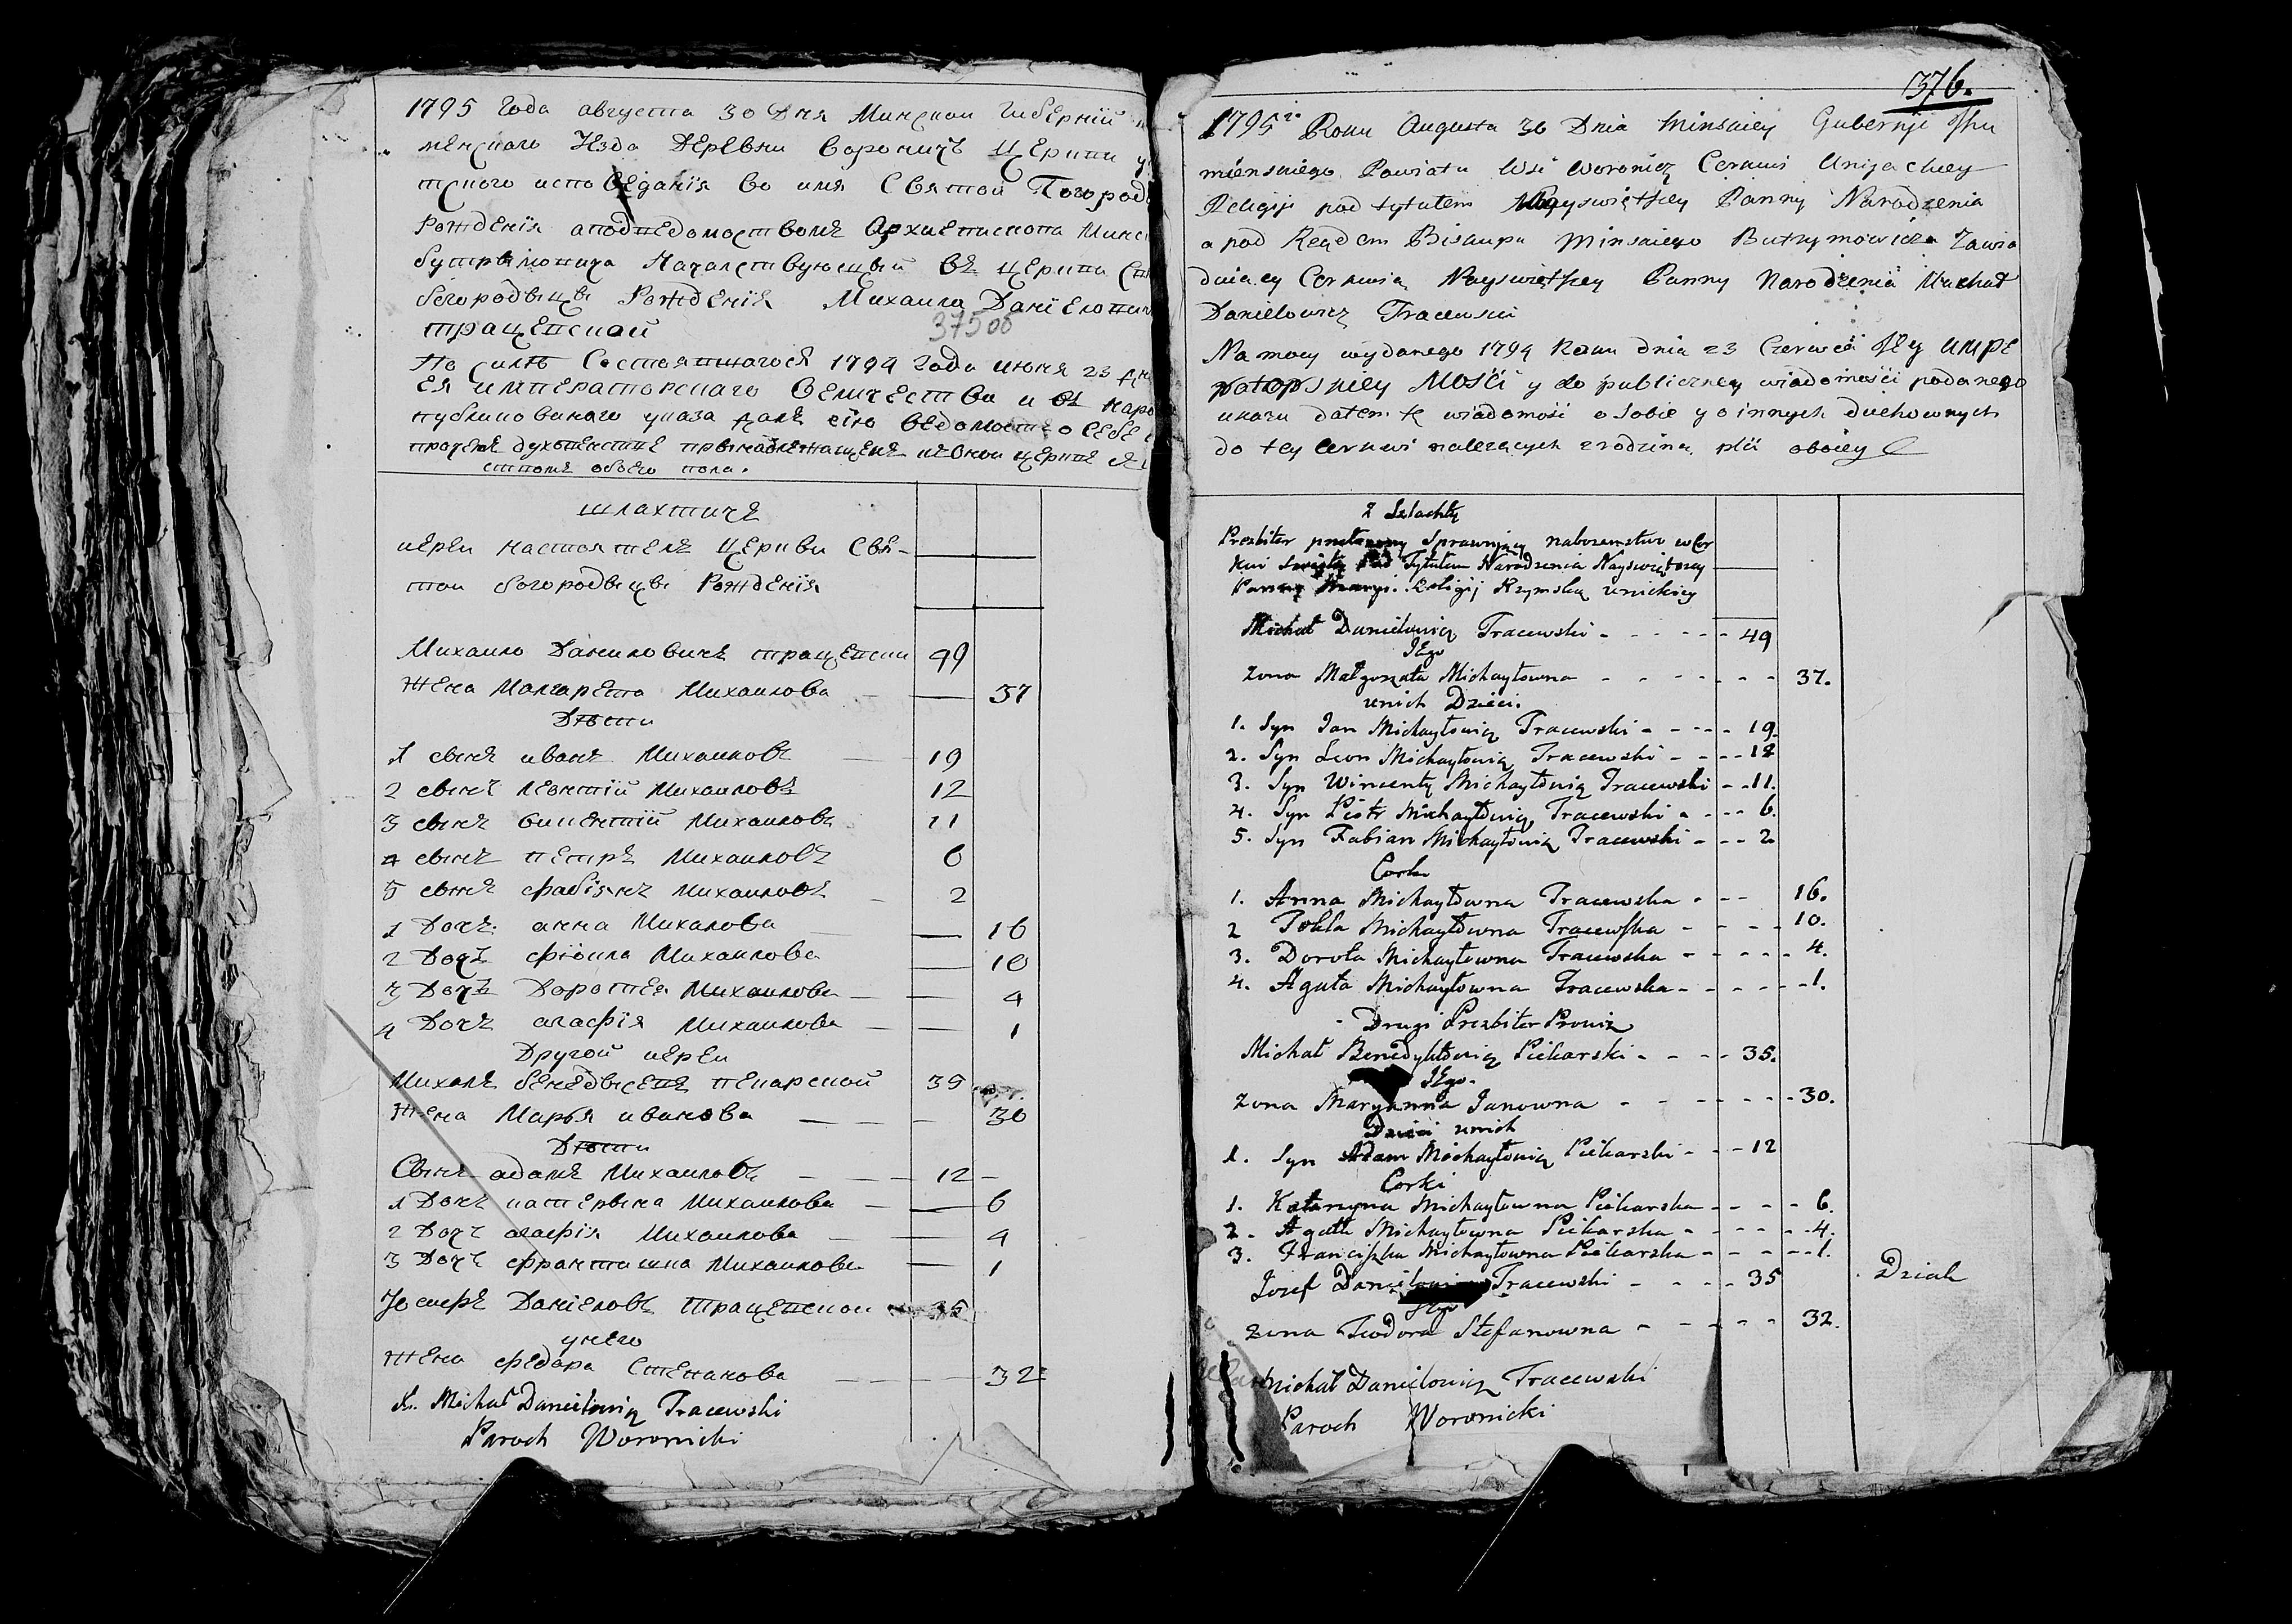 1795 года августа 30 дня Минской Губернии
менского уезда деревни Воронич церкви
тского исповеданія во имя Святой Богород
Рождения а под ведомством Архиепископа Минс
Бутрымовича Началствующый въ церкви
богородвицы Рождения Михаило Даніелович
Трацевской
37500
По силѣ Состоявшагося 1794 года июня 23
Ея императорскаго Величества и въ наро
публикованого указа даю сію ведомость о себе
протчем духовенстве принадлежащемъ к оной церкве
ством обоего пола.
шлахтичъ
иереи настоятель Церкви Свя-
той богородвицы Рожденія
Михаило Даниловичъ трацевски 49
Жена Малгарета Михаилова — 37
Дѣти
1 сынъ иванъ Михаиловъ 19
2 сынъ Леонтій Михаиловъ 12
3 сынъ викентій Михаиловъ 11
4 сынъ петръ Михаиловъ 6
5 сынъ фабіянъ Михаиловъ 2
1 Дочъ анна Михалова — 16
2 Дочъ Михаилова — 10
3 Дочъ Доротея Михаилова — 4
4 Дочъ агафія Михаилова — 1
Другой иереи
Михалъ пекарской 39
Жена Марья иванова — 30
Дѣти
Сынъ адамъ Михаиловъ — 12 –
1 Дочъ катерына Михаилова — 6
2 Дочъ агафія Михаилова — 4
3 Дочъ франтишка Михаилова — 1
Юсифъ Даніеловъ трацевской 35
унего
Жена федора Степанова — 32
X. Michał Danielowicz Tracewski
Paroch Woronicki
376.
1795 Roku Augusta 30 Dnia Minskiey Gubernji Jhu
mienskiego Powiatu Wsi Woronicz Cerkwi Unijackiey
Religji pod tytułem Nayswiętszey Panny Narodzenia
a pod Rządem Biskupa Minskiego Butrymowicza Zawia
duiącey Cerkwią Nayswiętszey Panny Narodzenia Michał
Danielowicz Tracewski
Na mocy wydanego 1794 Roku dnia 23 Czerwca Jey IMPE
ratorskiey Mości y do publiczney wiadomości podanego
ukazu datem tę wiadomość o sobie y o innych duchownych
do tey cerkwi należących z rodziną płci oboiey
z Szlachty
Prezbiter Sprawujący nabozenstwo w Cer
kwi pod Tytułem Narodzenia Nayswiętszey
Panny Maryi. Religij Rzymską unickiey
Michał Danielowicz Tracewski - - - - - 49
JEgo
Zona Małgorzata Michayłowna - - - - - - - 37.
unich Dzieci.
1. Syn Jan Michayłowicz Tracewski - - - - 19.
2. Syn Leon Michayłowicz Tracewski - - - 12
3. Syn Wincenty Michayłowicz Tracewski - - 11.
4. Syn Piotr Michayłowicz Tracewski - - - - 6.
5. Syn Fabian Michayłowicz Tracewski - - - 2.
Corki
1. Anna Michayłowna Tracewska - - - 16.
2 Tekla Michayłowna Tracewska - - - - - 10.
3. Dorota Michayłowna Tracewska - - - - - 4.
4. Agata Michayłowna Tracewska - - - - - - 1.
Drugi Prezbiter
Michał Benedyktowicz Piekarski - - - - 35.
JEgo.
Zona Maryanna Janowna - - - - - - - 30.
Dzieci unich
1. Syn Adam Michayłowicz Piekarski - - - 12
Corki
1. Katarzyna Michayłowna Piekarska - - - - 6.
2. Agata Michayłowna Piekarska - - - - - 4.
3. Franciszka Michayłowna Piekarska - - - - - 1.
Jozef Tracewski - - - - 35
Dziak
JEgo
Zona Teodora Stefanowna - - - - - 32.
Michał Danielowicz Tracewski
Paroch Woronicki